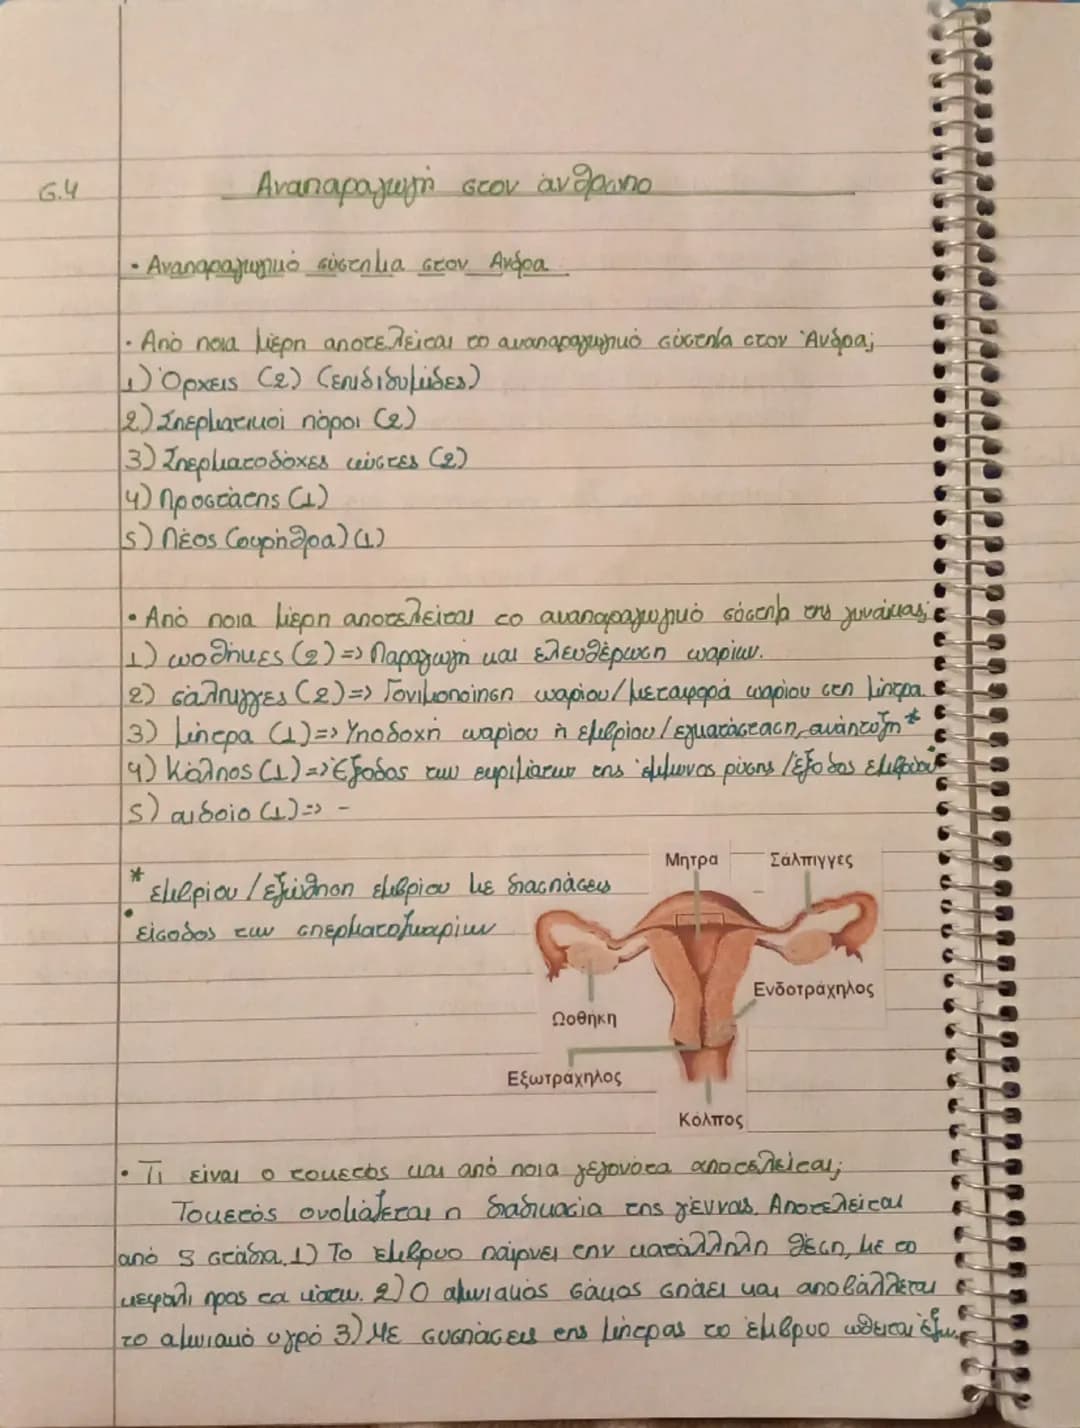 6.4
Αναπαραγωγή στον άνθρωπο
• Αναπαραγωγικό σύστημα στον Άνδρα
• Από ποια μέρη αποτελείται το αναπαραγωγικό σύστημα στον Άνδρα;
1) Όρχεις (2) (επιδιδυμίδες)
2) Σπερματικοί πόροι (2)
3) Σπερματοδόχες κύστες (2)
4) Προστάτης (1)
5) Πέος (ουρήθρα) (1)
• Από ποια μέρη αποτελείται το αναπαραγωγικό σύστημα της γυναίκας;
1) ωοθήκες (2) => Παραγωγή και ελευθέρωση ωαρίων.
2) σάλπιγγες (2) => Γονιμοποίηση ωαρίου/μεταφορά ωαρίου στη μήτρα
3) μήτρα (1) => Υποδοχή ωαρίου ή εμβρίου/εγκατάσταση, ανάπτυξη *
4) Κόλπος (1) => Έξοδος των της έμμηνος ρύσης /έξοδος εμβρύου •
5) αιδοίο (1) => -
* εμβρίου/εξώθηση εμβρίου με διασπάσεις
• είσοδος των σπερματοζωαρίων
Μητρα Σάλπιγγες
Ενδοτράχηλος
Ωοθήκη
Εξωτράχηλος
Κόλπος
• Τι είναι ο τοκετός και από ποια γεγονότα αποτελείται;
Τοκετός ονομάζεται η διαδικασία της γέννας. Αποτελείται
από 5 στάδια. 1) Το έμβρυο παίρνει την κατάλληλη θέση, με το
κεφάλι προς τα κάτω. 2) Ο αμνιακός σάκος σπάει και αποβάλλεται
το αμνιακό υγρό 3) Με συσπάσεις της μήτρας το έμβρυο ωθείται έξω.